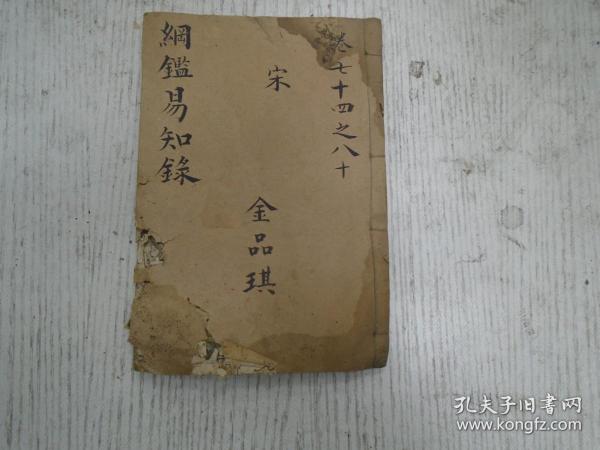 卷七十四之八十
宋
金品琪
綱鑑易知錄
孔夫子旧书网
www.kongfz.com